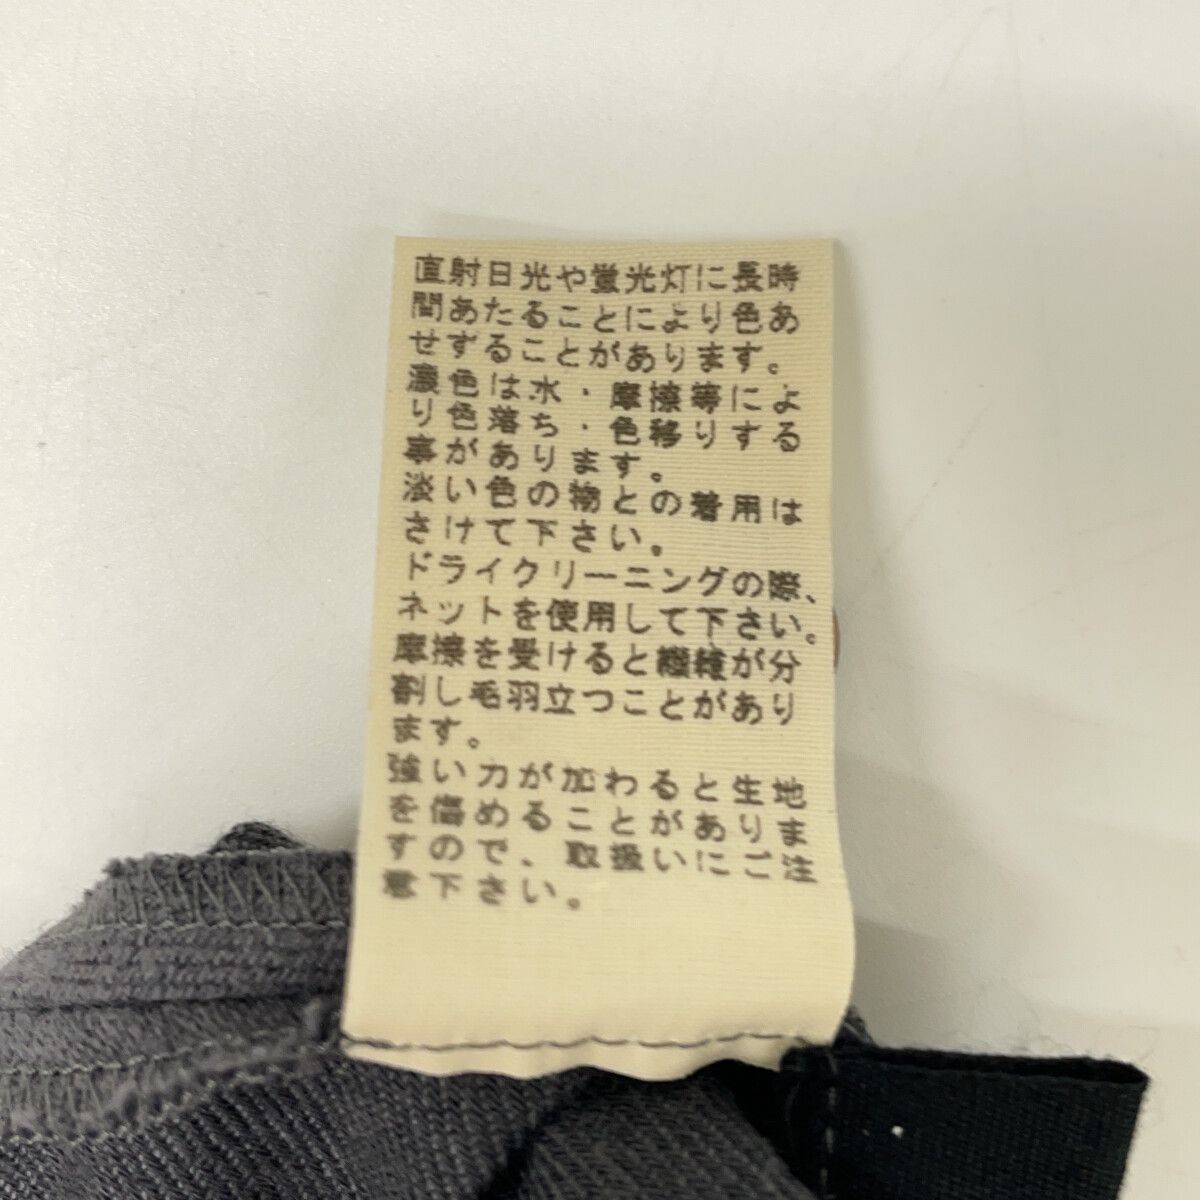 直射日光や蛍光灯に長時
間あたることにより色あ
せすることがあります。
濃色は水・摩擦等によ
り色落ち・色移りする
事があります。
淡い色の物との着用は
さけて下さい。
ドライクリーニングの際、
ネットを使用して下さい。
摩擦を受けると繊維が分
割し毛羽立つことがあり
ます。
強い力が加わると生地
を傷めることがありま
すので、取扱いにご注
意下さい。